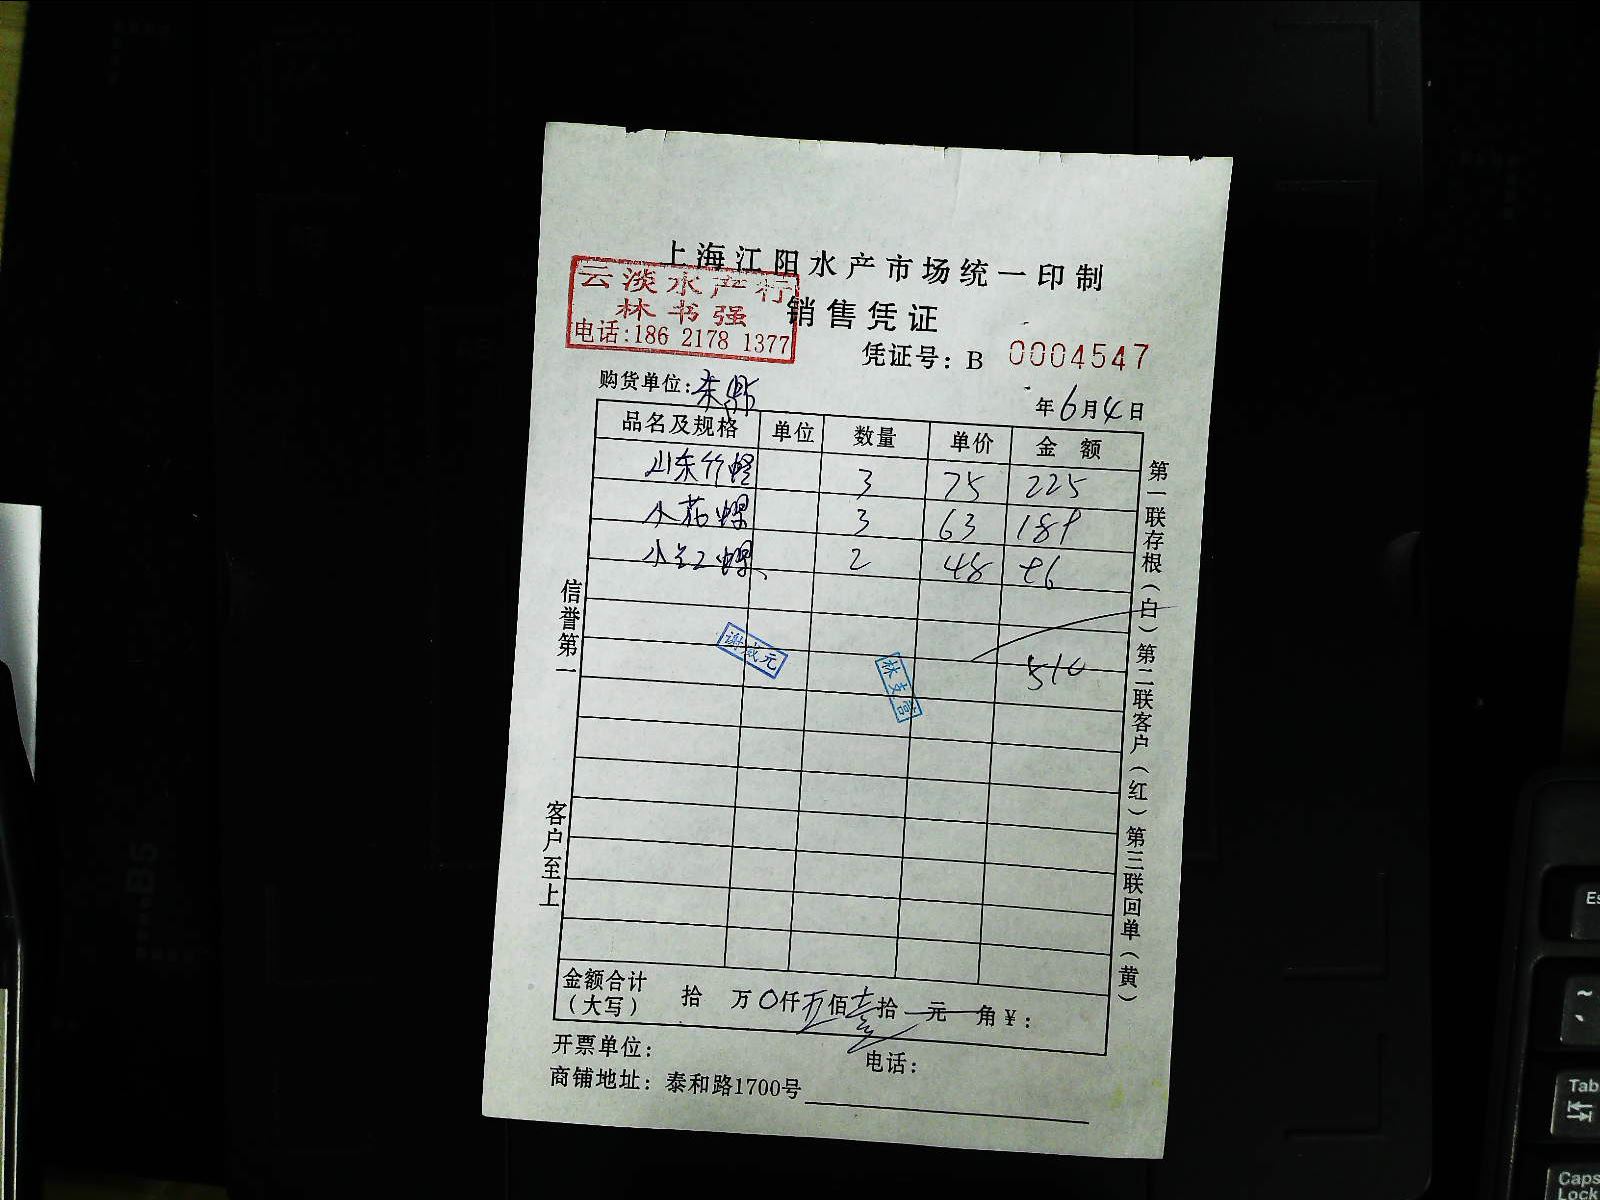 上海江阳水产市场统一印制
云淡水产行
林书强
电话:186 2178 1377
销售凭证
凭证号: B 0004547
购货单位:
年6月4日
品名及规格 单位 数量 单价 金额
山东竹蛏 3 75 225
小花螺 3 63 189
小红螺 2 48 96
谢成元
510
金额合计（大写） 拾 万0仟五佰壹拾 元 角¥:
开票单位: 电话:
商铺地址: 泰和路1700号
信誉第一
客户至上
第一联存根（白）第二联客户（红）第三联回单（黄）
B5
Es
~
Tab
Caps Lock